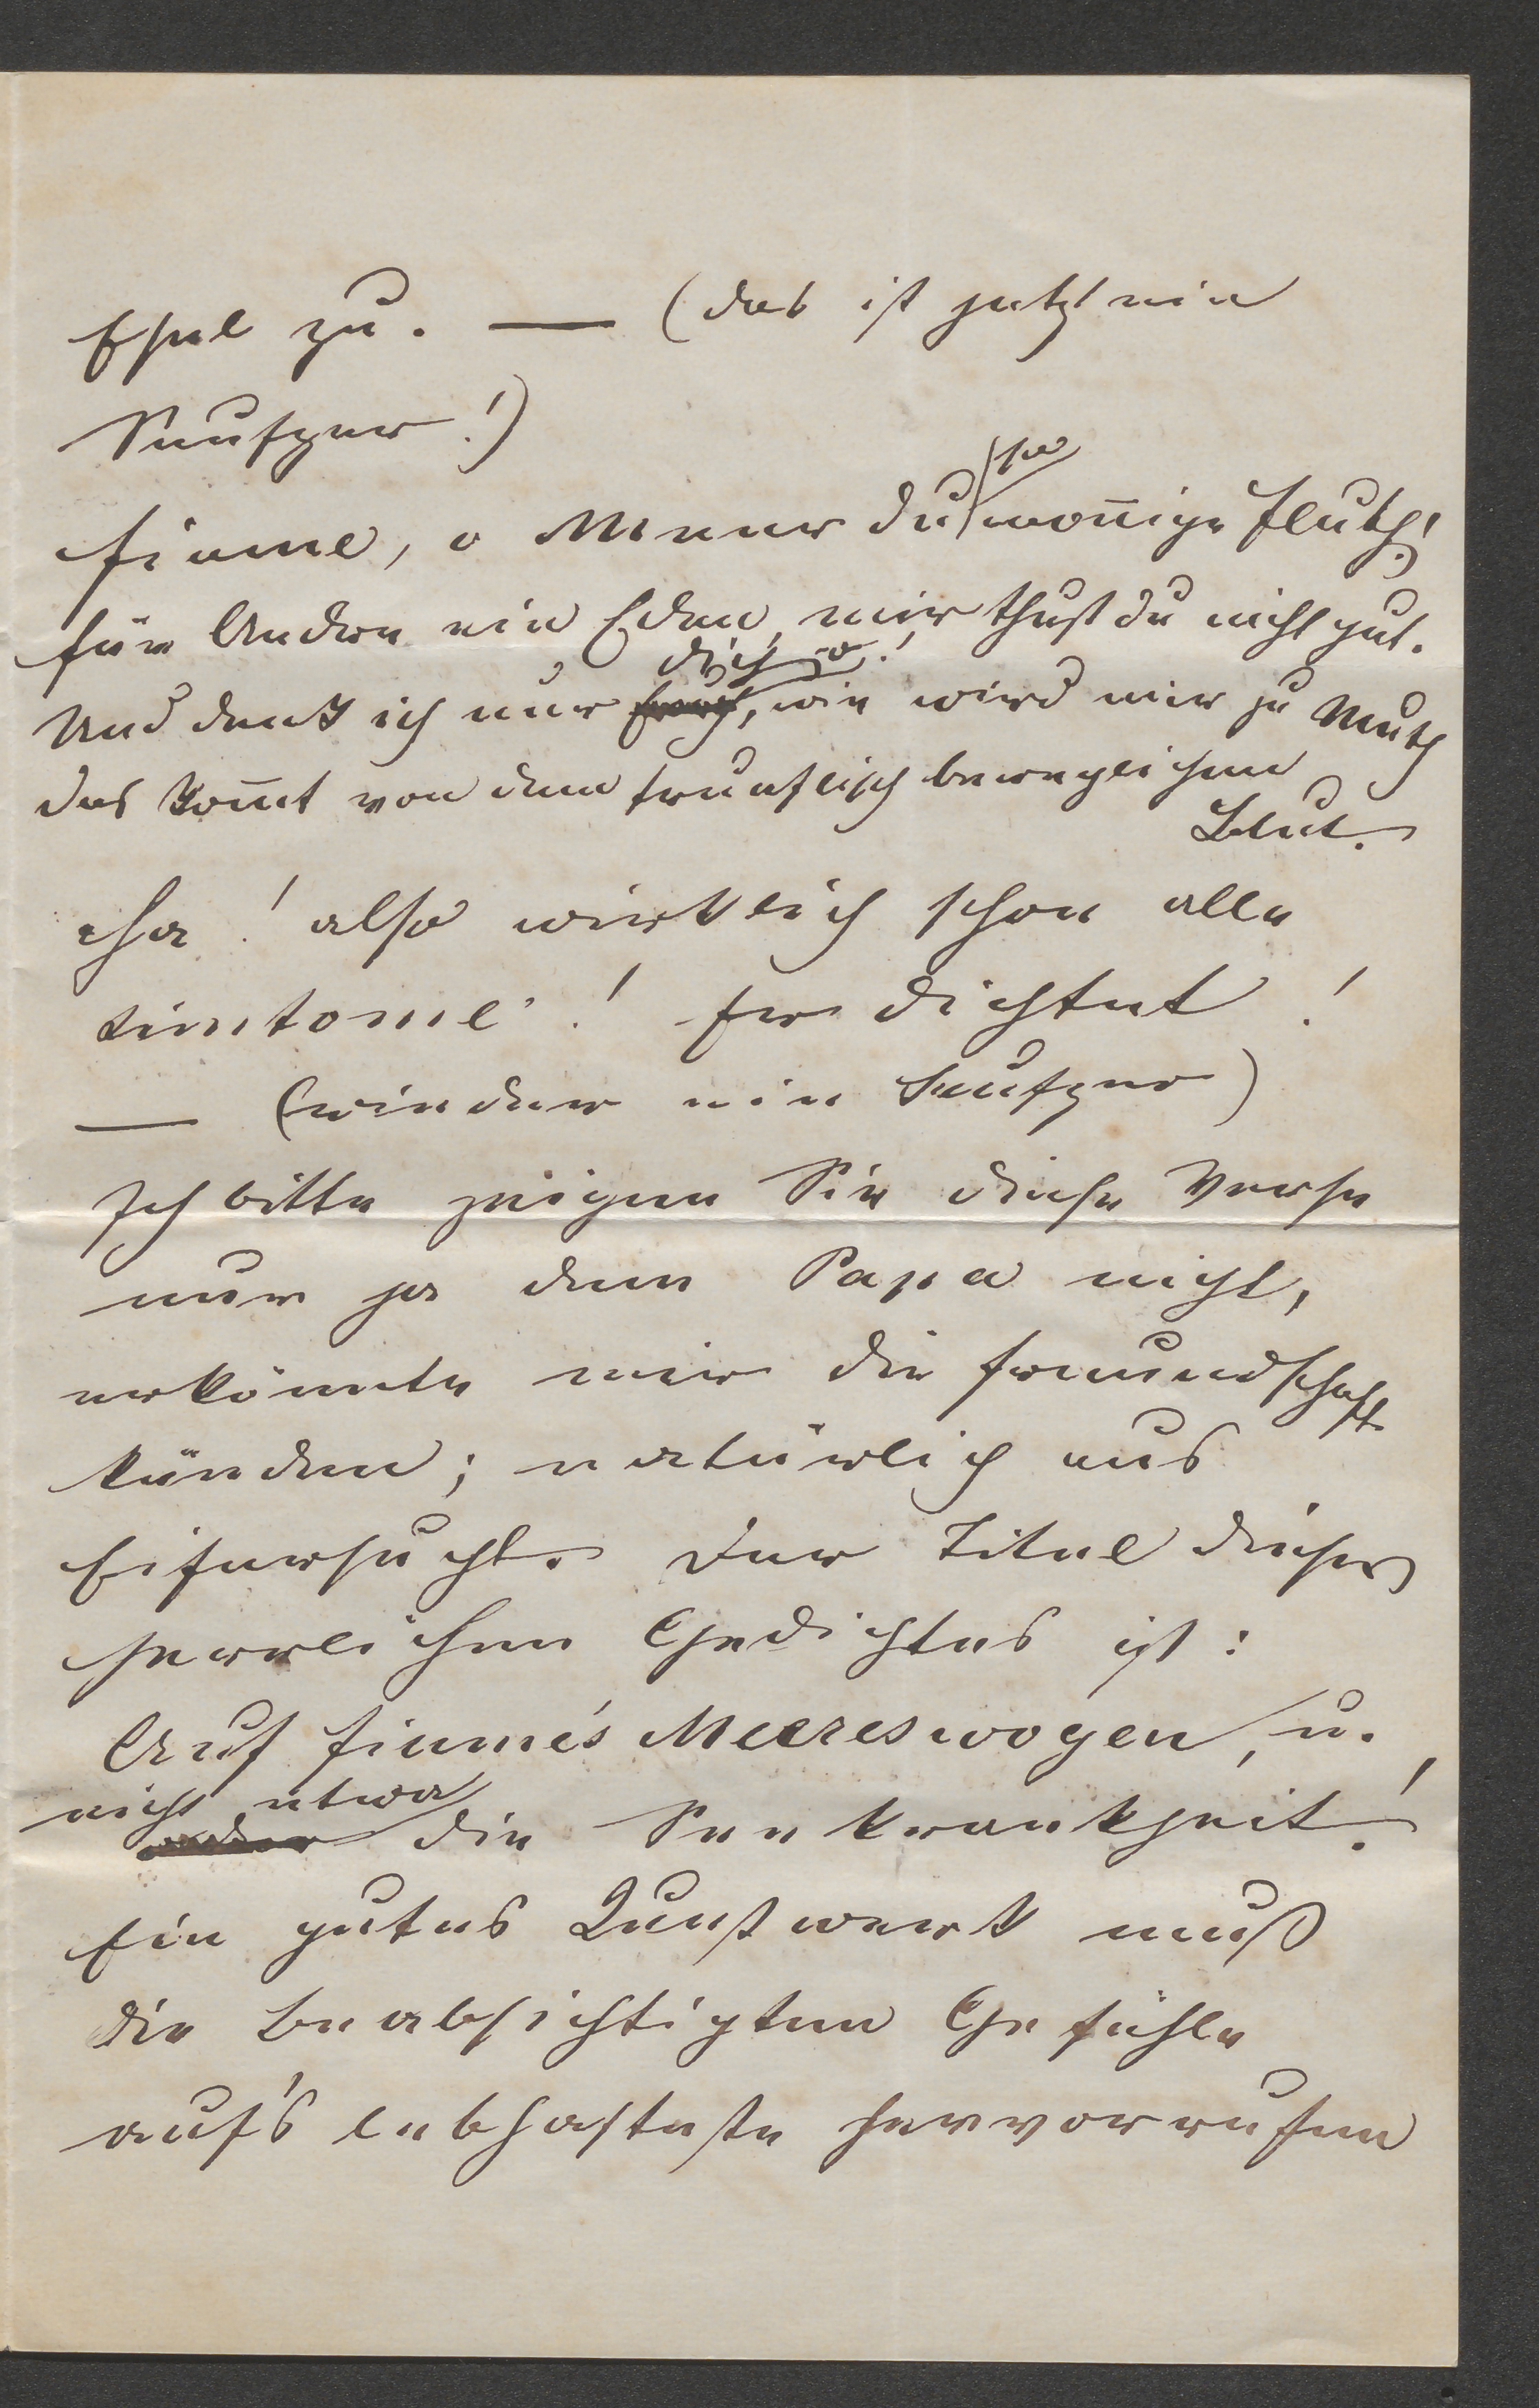 Esel zu. — (das ist jetzt ein
Seufzer!)
Fiume, o Meer du so woñige Fluth!
für Andre ein Eden, mir thust du nicht gut.
Und denk ich nur dich, o! wie wird mir zu Muth
das kom̃t von dem teuflisch beweglichen
Blut.
Ha! also wirklich schon alle
Simtome! Er dichtet!
— (wieder ein Seufzer)
Ich bitte zeigen Sie diese Verse
nur ja dem Papa nicht,
er könnte mir die Freundschaft
künden; natürlich aus
Eifersucht. Der Titel dieses
herrlichen Gedichtes ist:
Auf Fiume's Meereswogen, u.
nicht etwa
oder die Seekrankheit!
Ein gutes Kunstwerk muß
die beabsichtigten Gefühle
auf's lebhafteste hervorrufen